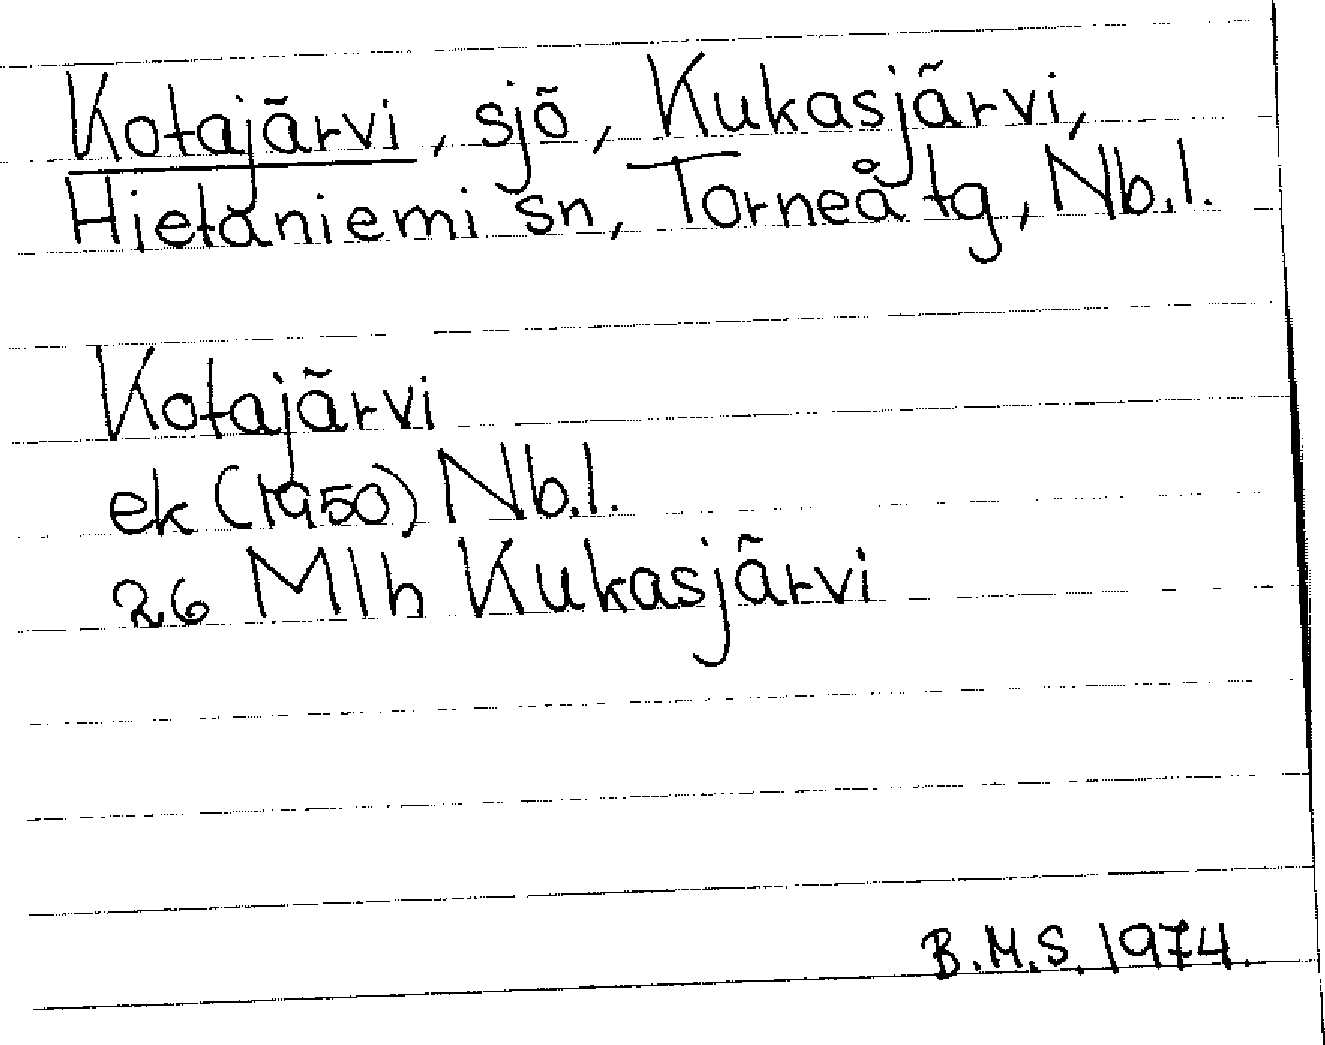 Kotajärvi, sjö, Kukasjärvi,
Hietaniemi sn, Torneå tg, Nb.l.
Kotajärvi
ek (1950) Nb.l.
26 Mlh Kukasjärvi
B.M.S. 1974.